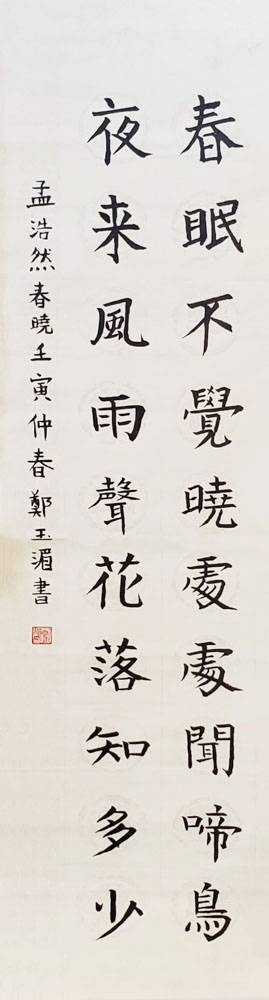 春眠不覺曉處處聞啼鳥
夜来風雨聲花落知多少
孟浩然春曉壬寅仲春鄭玉湄書